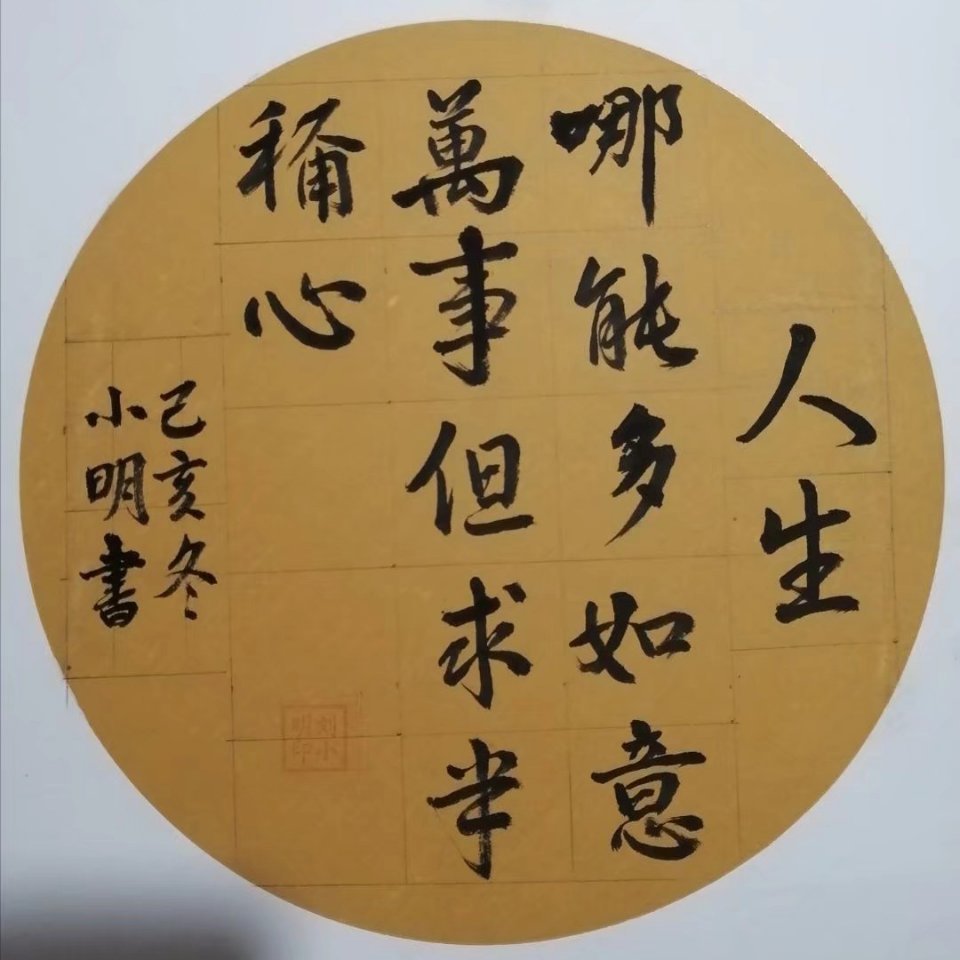 人生
哪能多如意
萬事但求半
稱心
己亥冬
小明書
刘小明印